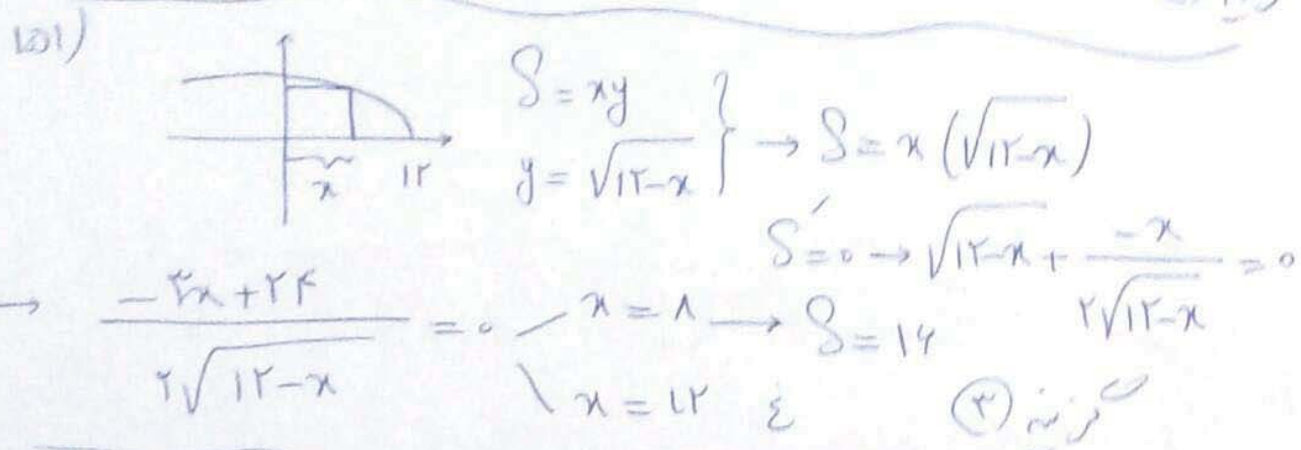 ۱۵۱)
S = xy
y = √۱۲-x } → S = x (√۱۲-x)
x ۱۲
S′=۰ → √۱۲-x + -x / ۲√۱۲-x = ۰
→ -۳x+۲۴ / ۲√۱۲-x = ۰ x = ۸ → S = ۱۶
x = ۱۲ غ
گزینه ۳